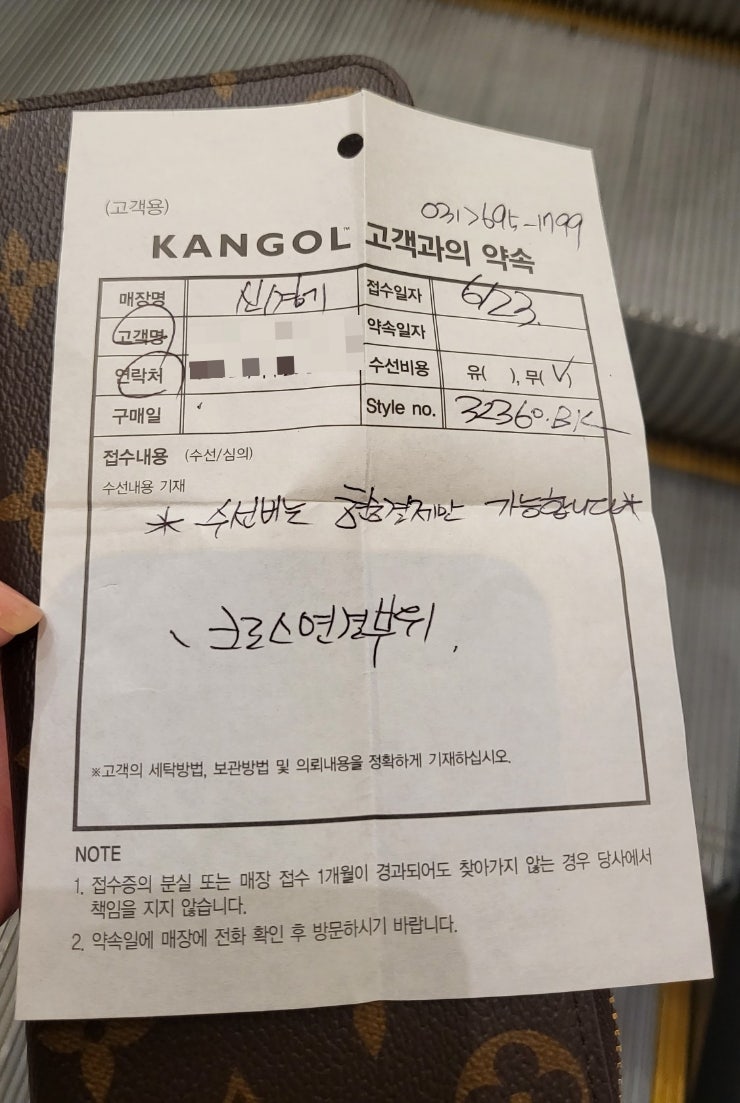 (고객용)
031>695-1799
KANGOL™ 고객과의 약속
매장명 신경기 접수일자 6/23.
고객명 약속일자
연락처 수선비용 유( ), 무(V)
구매일 Style no. 32360.BK
접수내용 (수선/심의)
수선내용 기재
* 수선비는 현금결제만 가능합니다*
크로스연결부위.
※고객의 세탁방법, 보관방법 및 의뢰내용을 정확하게 기재하십시오.
NOTE
1. 접수증의 분실 또는 매장 접수 1개월이 경과되어도 찾아가지 않는 경우 당사에서
책임을 지지 않습니다.
2. 약속일에 매장에 전화 확인 후 방문하시기 바랍니다.